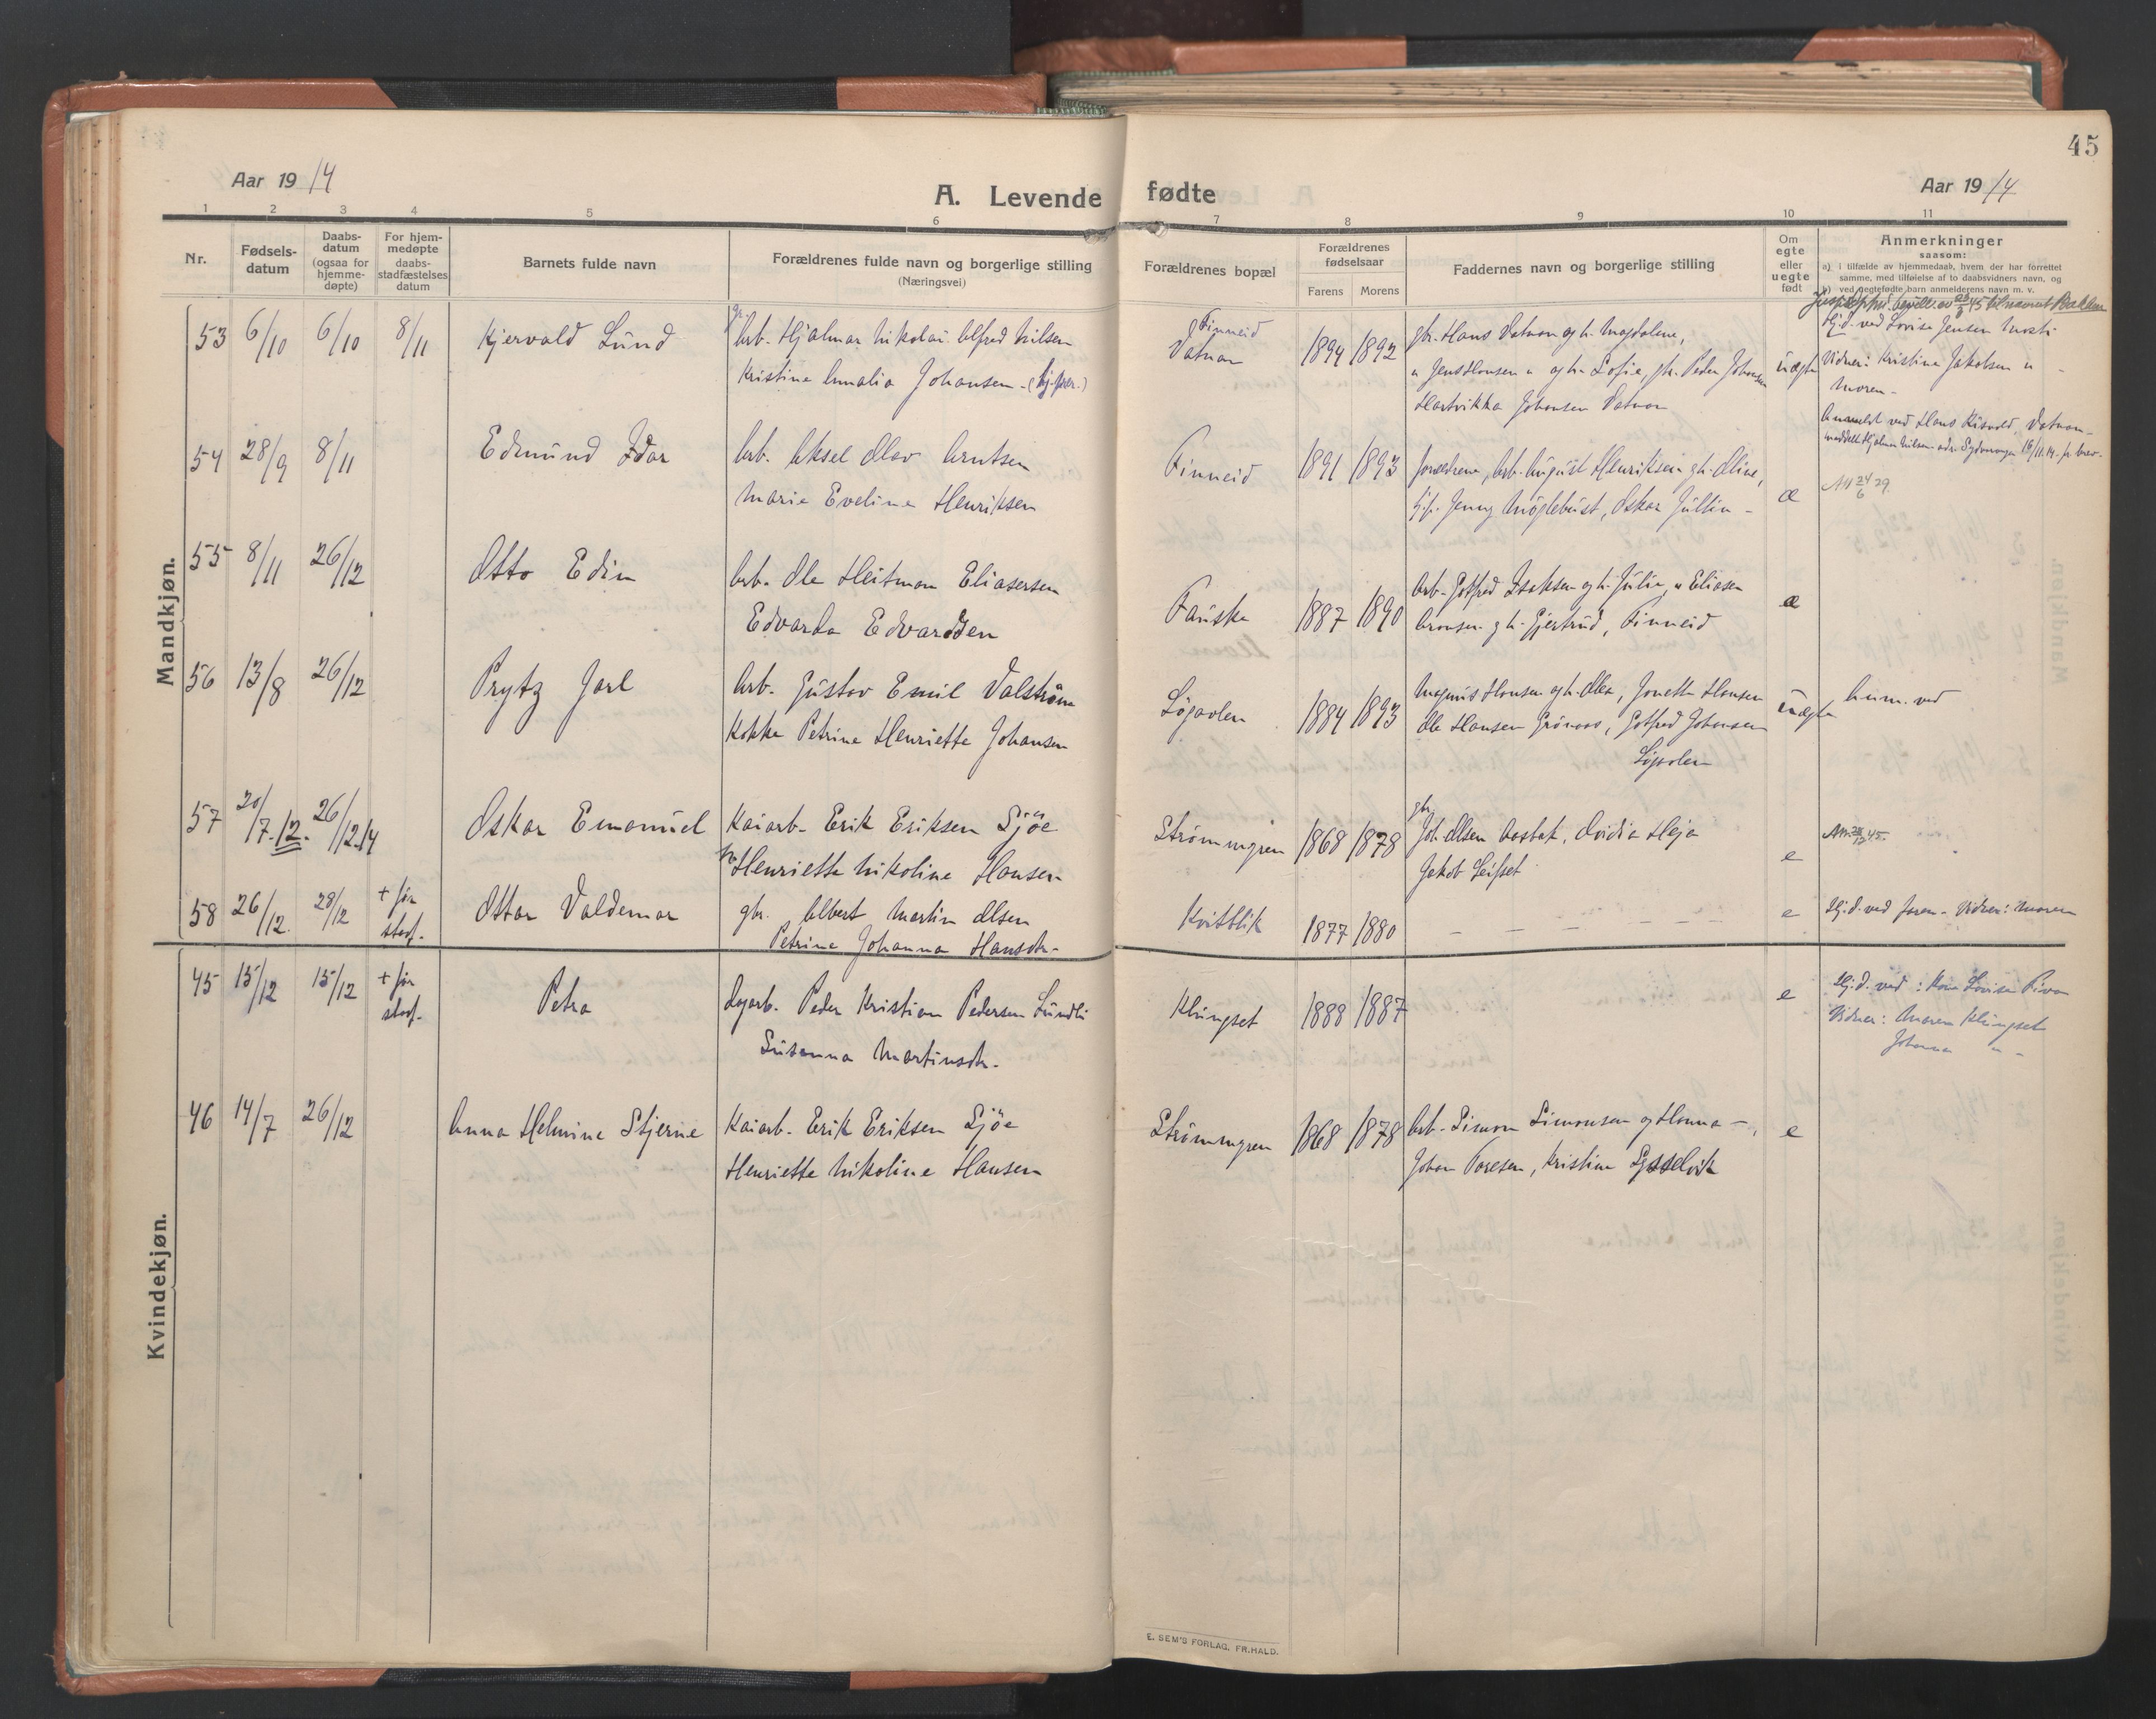 45
Aar 19 14
A. Levende fødte
Aar 19 14
1 2 3 4 5 6 7 8 9 10 11
Nr.
Fødsels-
datum
Daabs-
datum
(ogsaa for
hjemme-
døpte)
For hjem-
medøpte
daabs-
stadfæstelses
datum
Barnets fulde navn
Forældrenes fulde navn og borgerlige stilling
(Næringsvei)
Forældrenes bopæl
Forældrenes
fødselsaar
Farens Morens
Faddernes navn og borgerlige stilling
Om
egte
eller
uegte
født
Anmerkninger
saasom:
a) i tilfælde av hjemmedaab, hvem der har forrettet
samme, med tilføielse af to daabsvidners navn, og
b) ved uegtefødte barn anmelderens navn m. v.
Mandkjøn.
53 6/10 6/10 8/11 Kjervald Lund
gr.
Arb. Hjalmar Nikolai Alfred Nilsen
Kristine Amalia Johansen
Finneid
Vatnan
1894 1892
gbr. Hans Vatnan og h. Magdalene,
" Jens Hansen " og h. Sofie, gbr. Peder Johansen
Hartvikka Johansen Vatnan
uægte
Hj.d. ved Lovise Jensen Mosti
Vidner: Kristine Jakobsen "
Moren -
Anmeldt ved Hans Vatnan -
54 28/9 8/11 Edmund Idar
Arb. Aksel Olav Arntsen
Marie Eveline Henriksen
Finneid 1891 1893
Forældrene, Arb. August Henriksen og h. Oline,
Jenny Møglebust, Oskar Jullin -
æ
Att 24/6 29
55 8/11 26/12 Otto Edin
Arb. Ole Heitman Eliasersen
Edvarda Edvardsen
Fauske 1887 1890
Arb. Gotfred Isaksen og h. Julie, " Eliasen
Aronsen og h. Gjertrud, Finneid
æ
56 13/8 26/12 Prytz Jarl
Arb. Gustav Emil Valstrøm
Kokke Petrine Henriette Johansen
Løgavlen 1884 1893
Magnus Hansen og h. Olea, Jonette Hansen
Ole Hansen Grønaas, Gotfred Johansen
Løgavlen
uægte
Anm. ved
57 20/7.12. 26/12.14 Oskar Emanuel
Kaiarb. Erik Eriksen Sjøe
Henriette Nikoline Hansen
Strømmgren 1868 1878
gbr.
Joh. Olsen Aasbak, Ovidia Heja
Jakob Leifset
e
58 26/12. 28/12 + før
stadf.
Ottar Valdemar
gbr. Albert Martin Olsen
Petrine Johanna Hansdtr.
Kvitblik 1877 1880
– – – – – –
e
Hj.d. ved faren - Vidner: Moren
Kvindekjøn.
45 15/12 15/12 + før
stadf.
Petra
Dagarb. Peder Kristian Pedersen Lundli
Susanna Martinsdtr.
Klungset 1888 1887
e
Hj.d. ved: Kone Lovise Piva
Vidner: Maren Klungset
Johanna " -
46 14/7 26/12 Anna Helmine Stjerne
Kaiarb. Erik Eriksen Sjöe
Henriette Nikoline Hansen
Strømmgren 1868 1878
Arb. Simon Simonsen og Hanna -,
Johan Toresen, Kristine Sjsselvik
e
E. SEM'S FORLAG, FR.HALD.